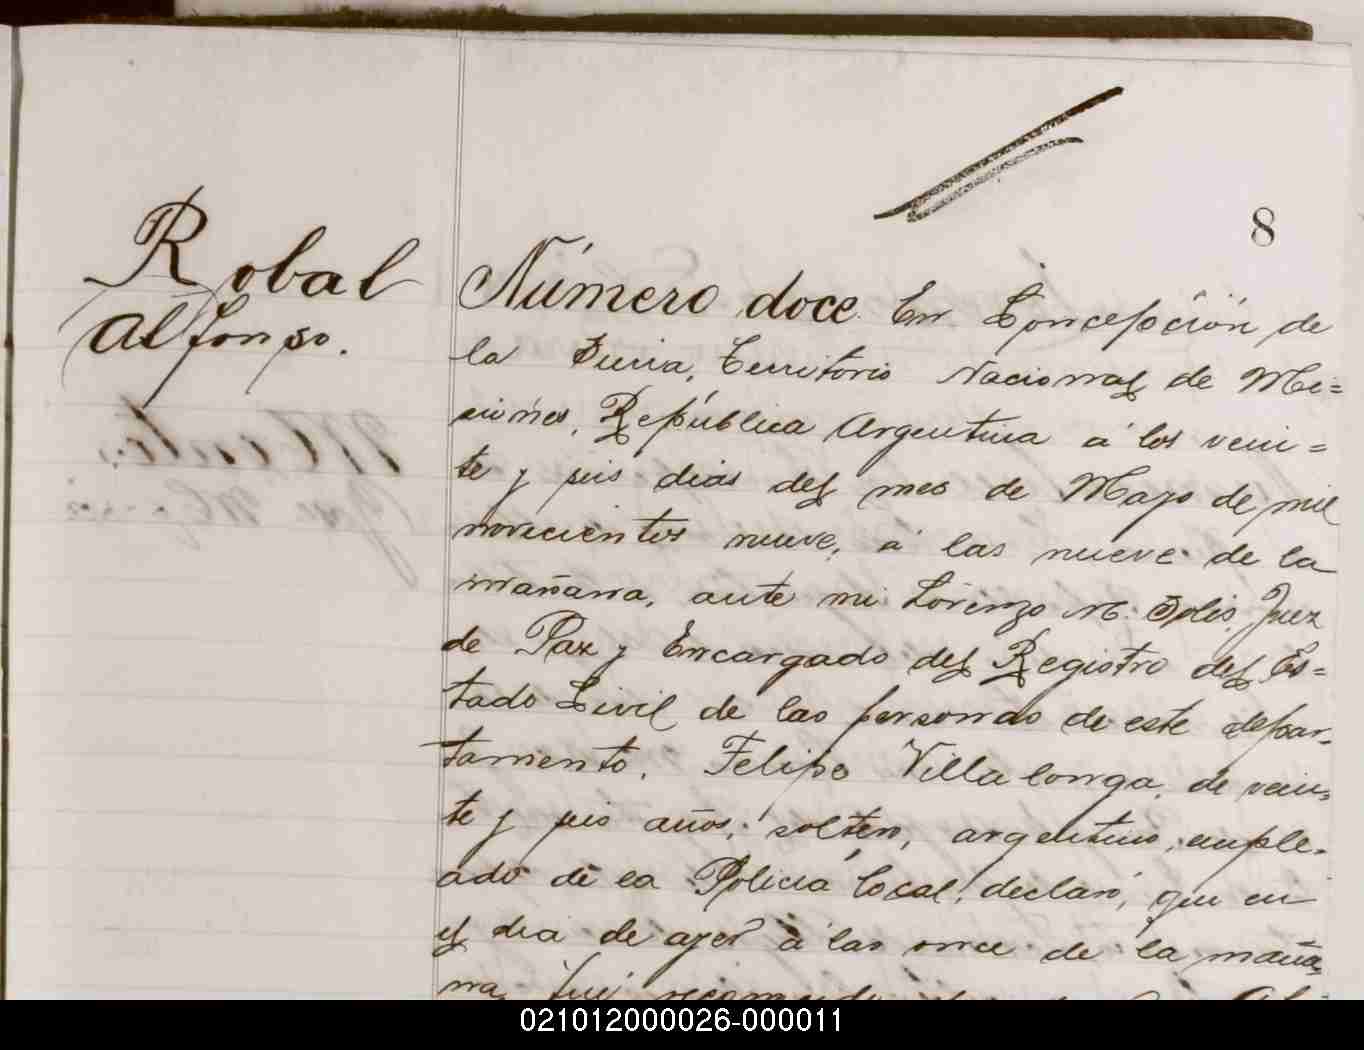 8
Robal
Alfonso.
Número doce. En Concepción de
la Sierra, Territorio Nacional de Mi=
siones, República Argentina á los vein=
te y seis dias del mes de Mayo de mil
novecientos nueve, á las nueve de la
mañana, ante mi Lorenzo M. Solis, Juez
de Paz y Encargado del Registro del Es=
tado Civil de las personas de este depar-
tamento, Felipe Villalonga, de vein-
te y seis años, soltero, argentino, emple-
ado de la Policia local, declaró, que en
el dia de ayer á las once de la maña
na, fué
021012000026-000011